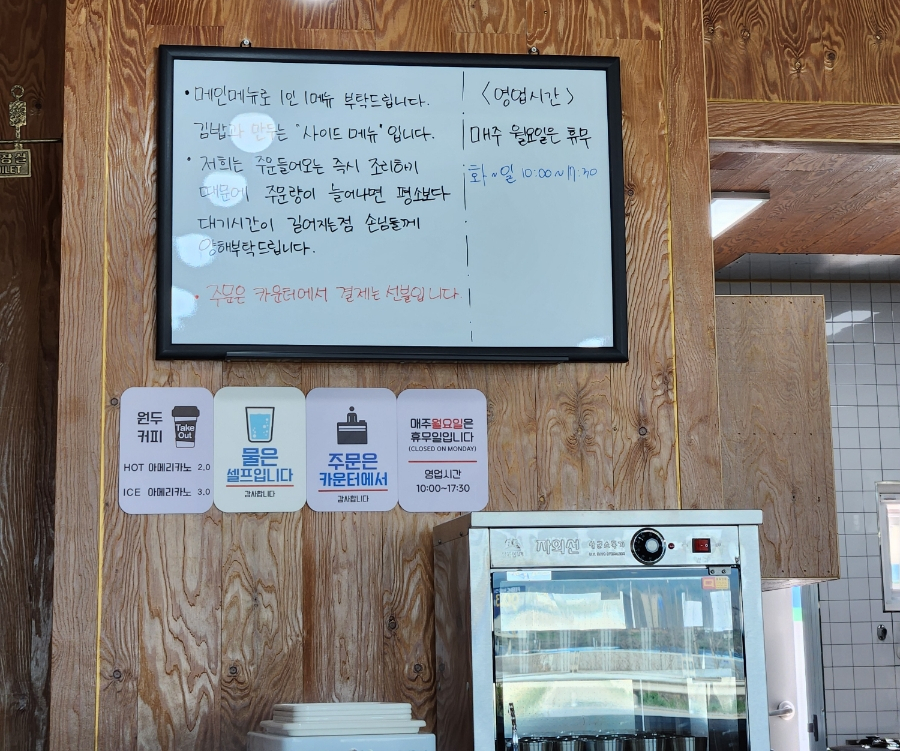 • 메인메뉴로 1인 1메뉴 부탁드립니다.
김밥과 만두는 "사이드 메뉴"입니다.
• 저희는 주문들어오는 즉시 조리하기
때문에 주문량이 늘어나면 평소보다
대기시간이 길어지는점 손님들께
양해부탁드립니다.
• 주문은 카운터에서 결제는 선불입니다
<영업시간>
매주 월요일은 휴무
화~일 10:00~17:30
원두
커피
Take
Out
HOT 아메리카노 2.0
ICE 아메리카노 3.0
물은
셀프입니다
감사합니다
주문은
카운터에서
감사합니다
매주월요일은
휴무일입니다
(CLOSED ON MONDAY)
영업시간
10:00~17:30
자외선